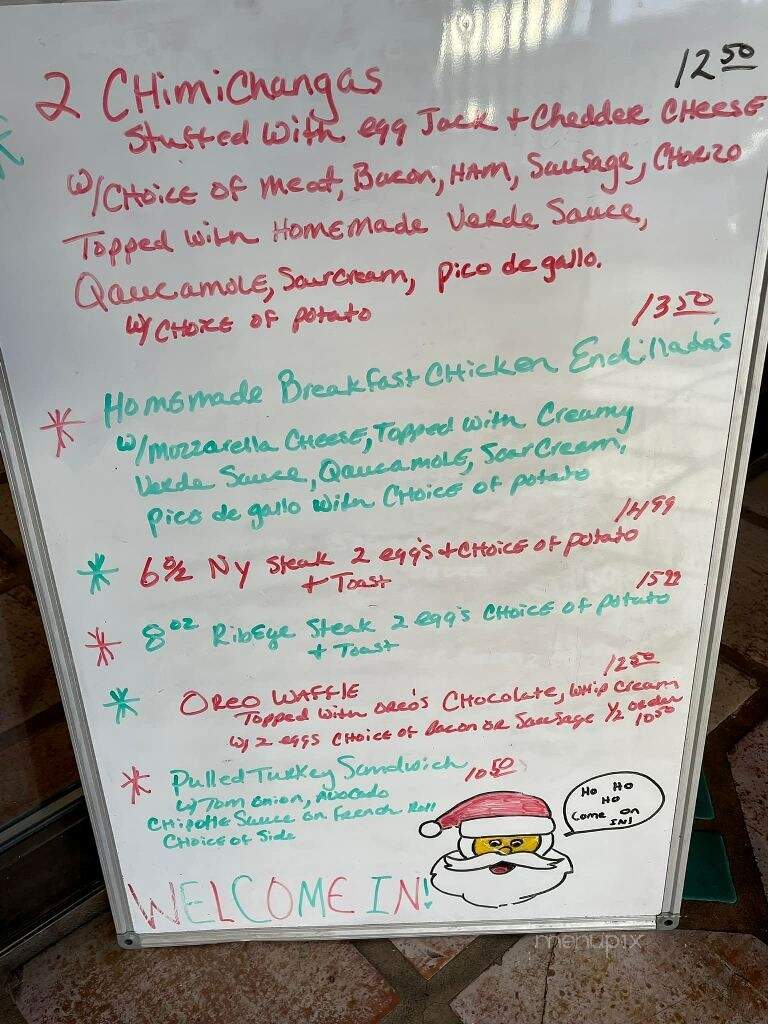 2 CHimiChangas 12 50
Stuffed with egg Jack + Chedder CHEESE
w/CHOICE OF meat, Bacon, HAM, Sausage, CHORIZO
Topped with HOMEMADE Verde Sauce,
Qaucamole, Sourcream, pico de gallo.
w/ CHOICE OF potato
13 50
Homemade Breakfast CHicken Enchilladas
w/Mozzarella CHEESE, Topped with Creamy
Verde Sauce, Qaucamole, SourCream,
pico de gallo with CHOICE of potato
14 99
6oz Ny Steak 2 egg's + CHOICE OF potato
+ Toast
15 99
8oz RibEye Steak 2 egg's CHOICE of potato
+ Toast
12 50
OREO WAFFLE
Topped with OREO'S CHocolate, WHip Cream
w/ 2 eggs CHOICE of Bacon OR Sausage 1/2 order
10 50
Pulled Turkey Sandwich 10 50
w/ Tom onion, Avocado
CHipotle Sauce on French Roll
CHOICE of Side
Ho Ho
Ho
Come on
IN!
WELCOME IN!
menupix